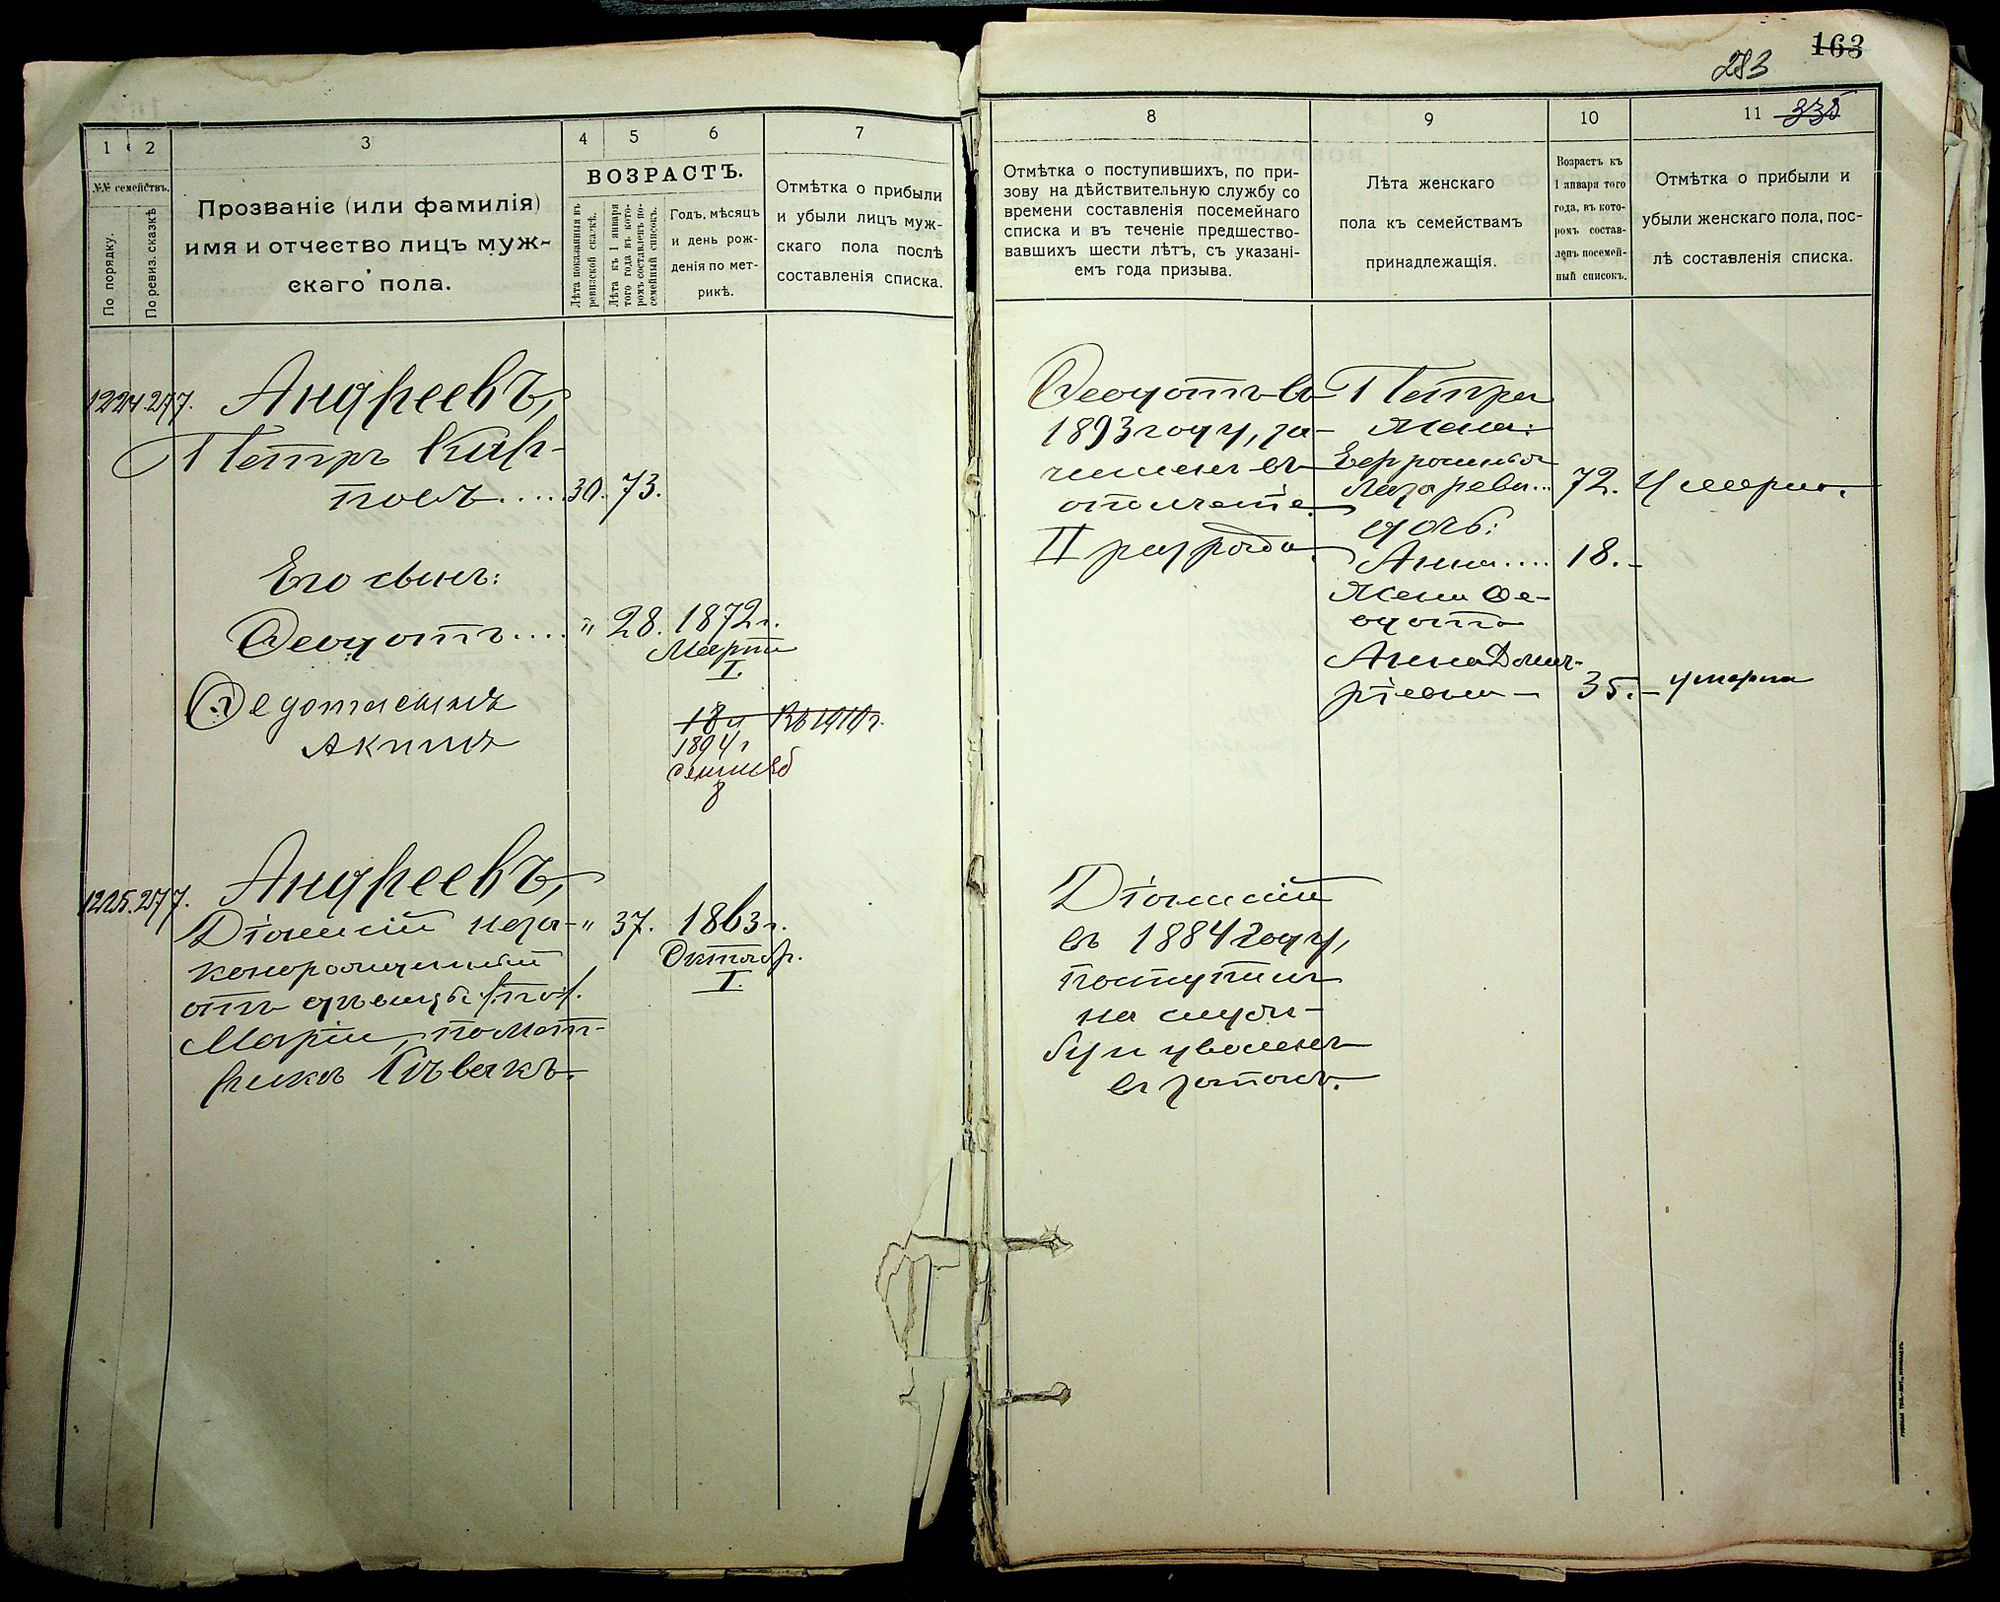 163
283
335
1
2
3
4
5
6
7
№№ семействъ.
По порядку.
По ревиз. сказкѣ
Прозваніе (или фамилія)
имя и отчество лицъ муж-
скаго пола.
ВОЗРАСТЪ.
Лѣта показанныя въ
ревизской сказкѣ.
Лѣта къ 1 января
того года въ кото-
ромъ составленъ по-
семейный списокъ.
Годъ, мѣсяцъ
и день рож-
денія по мет-
рикѣ.
Отмѣтка о прибыли
и убыли лицъ муж-
скаго пола послѣ
составленія списка.
1224. 277. Андреевъ,
Петръ Кар-
повъ.... 30. 73.
Его сынъ:
Ѳедотъ.... " 28. 1872 г.
Марта
I.
Ѳедота сынъ
Акимъ
18 Въ 1910 г.
1894 г
8
1225. 277. Андреевъ,
Діонисій неза- " 37. 1863 г.
конорожденный Октябр.
отъ дѣвицы I.
Маріи, по мет-
рикѣ
8
9
10
11
Отмѣтка о поступившихъ, по при-
зову на дѣйствительную службу со
времени составленія посемейнаго
списка и въ теченіе предшество-
вавшихъ шести лѣтъ, съ указані-
емъ года призыва.
Лѣта женскаго
пола къ семействамъ
принадлежащія.
Возрастъ къ
1 января того
года, въ кото-
ромъ состав-
ленъ посемей-
ный списокъ.
Отмѣтка о прибыли и
убыли женскаго пола, пос-
лѣ составленія списка.
Ѳедотъ въ
1893 году, за-
численъ въ
ополченіе
II разряда.
Петра
жена:
Ефросинья
Лазарева... 72. Умерла.
дочь:
Анна.... 18.-
Жена Ѳе-
дота
Анна Дмит-
ріевна - 35.- умерла
Діонисій
въ 1884 году,
поступилъ
на служ-
бу и уволенъ
въ запасъ.